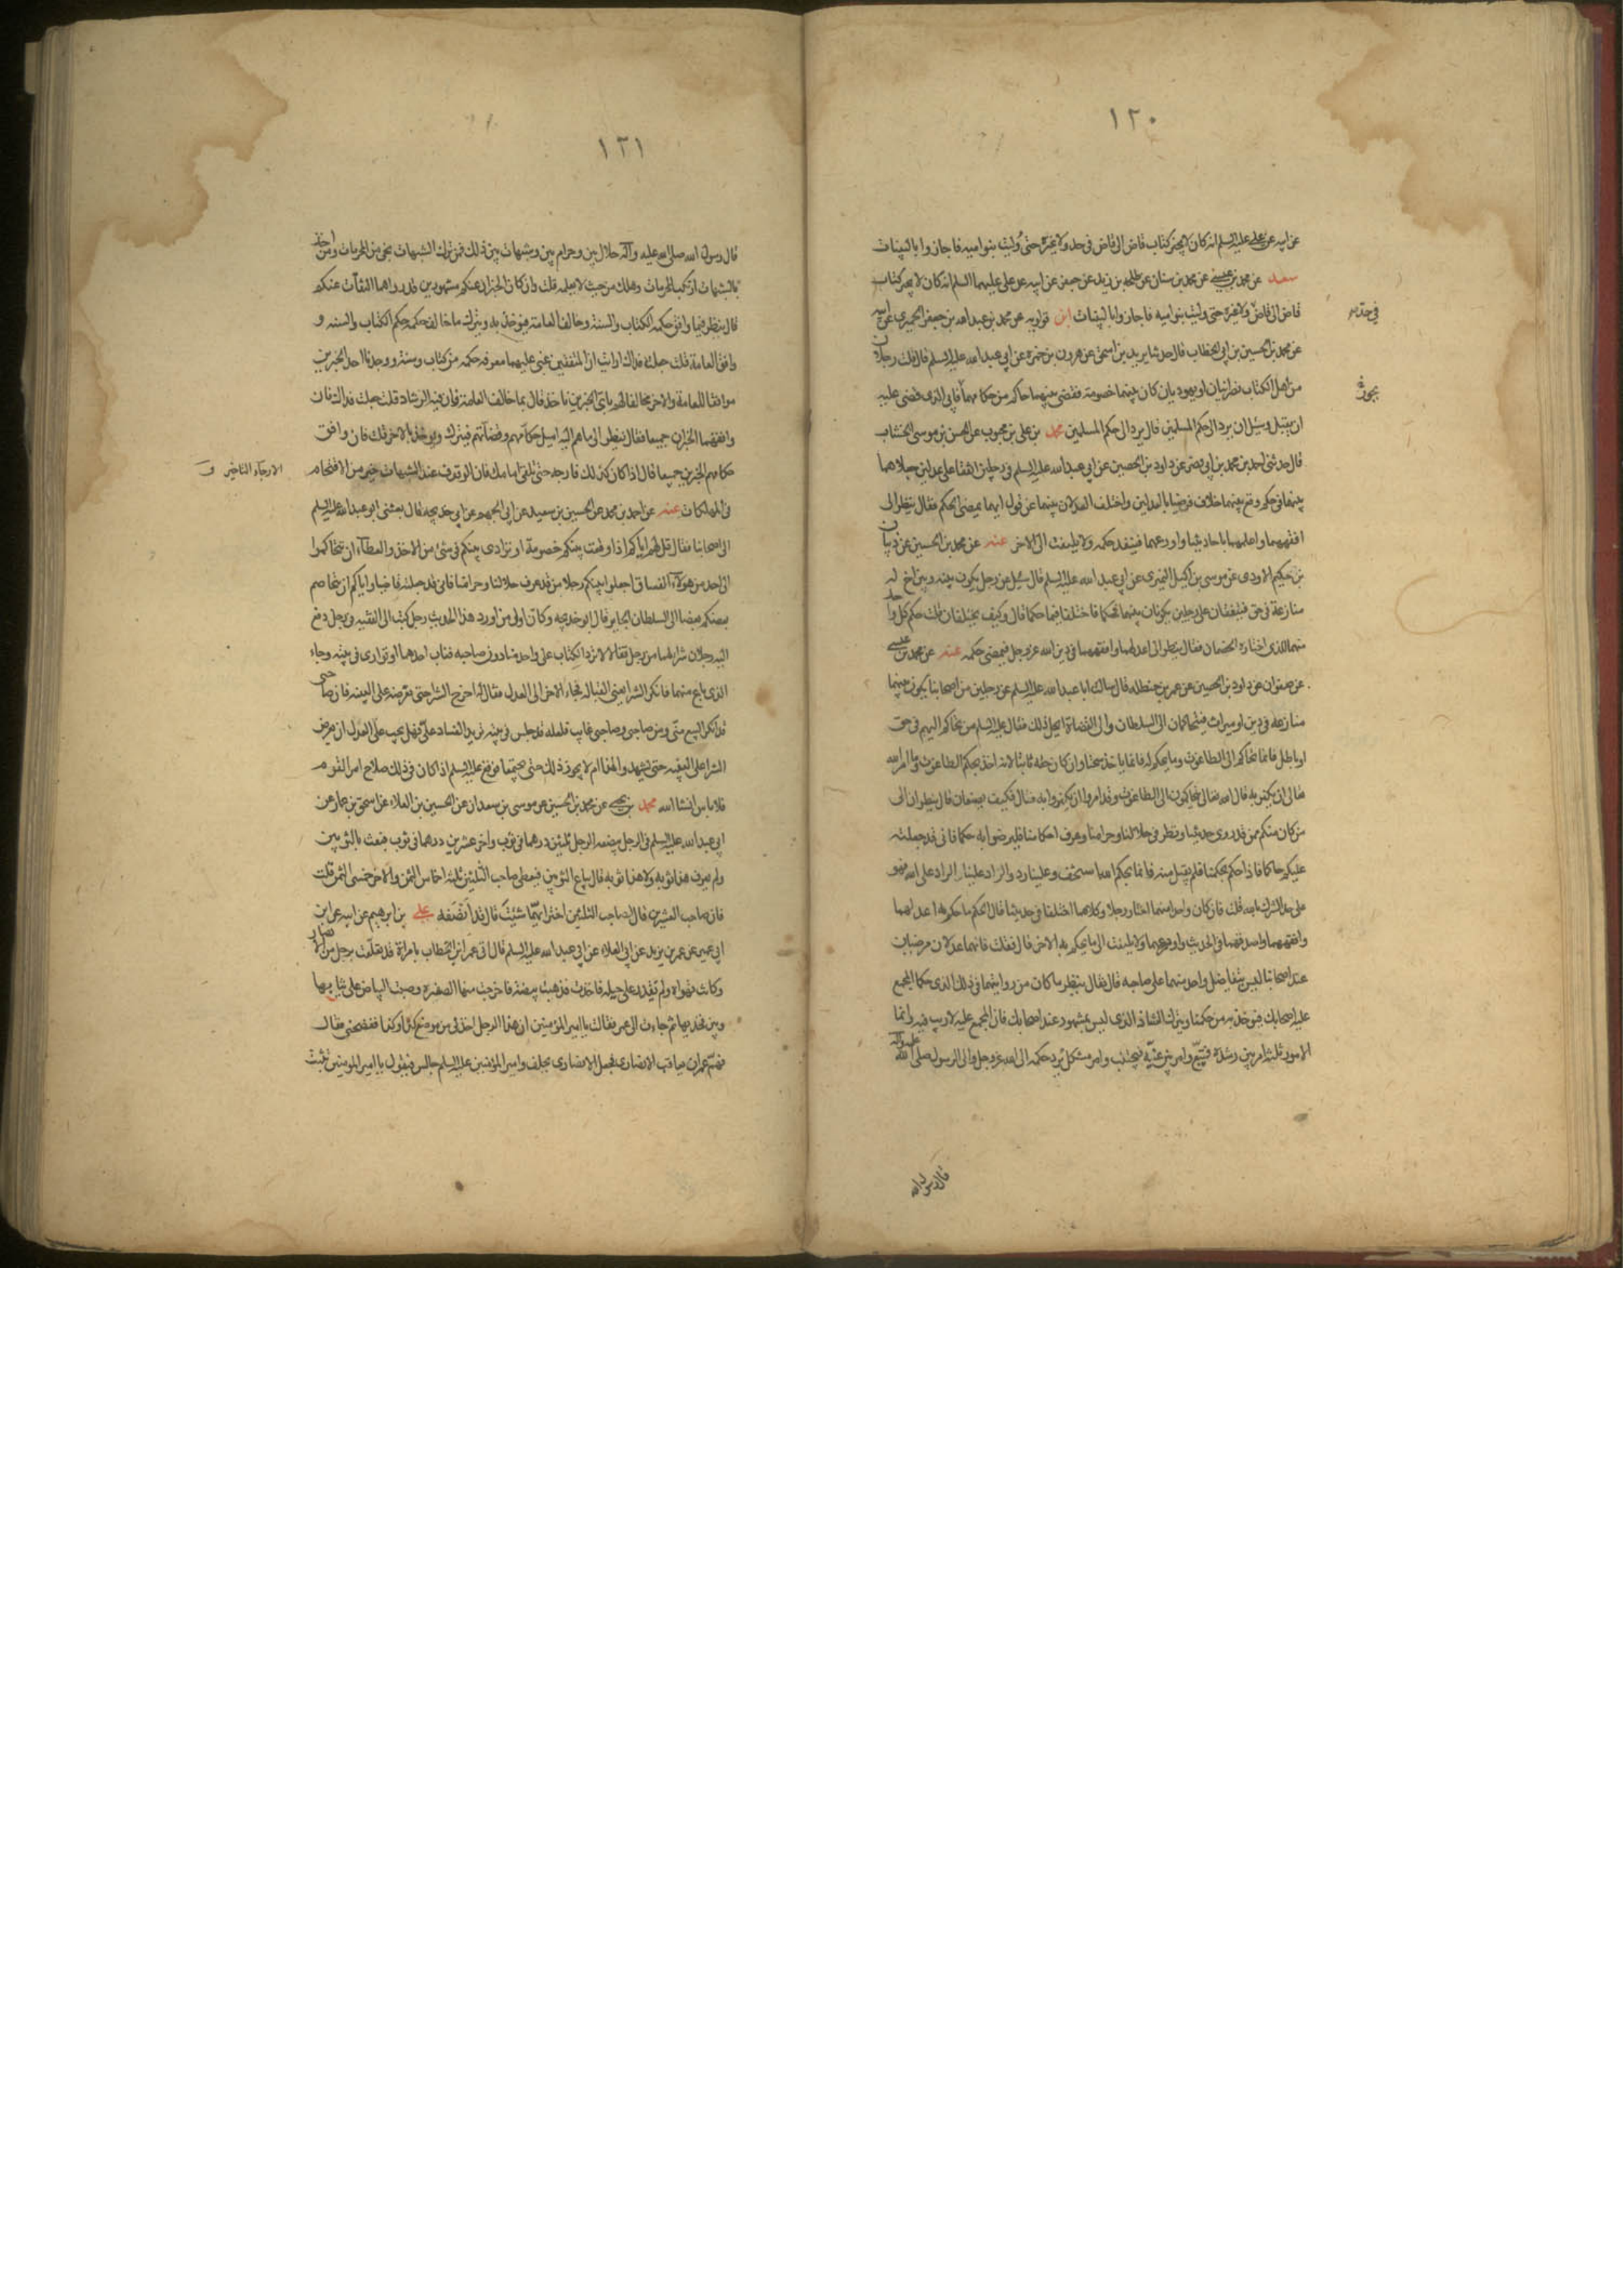 ١٢٠
عن ابيه عن علي عليه السلم انه كان لا يجيز كتاب قاض الى قاض في حد ولا غيره حتى وليت بنو اميه فاجازوا بالبينات
سعد عن محمد بن عيسى عن محمد بن سنان عن طلحه بن زيد عن جعفر عن ابيه عن علي عليهما السلم انه كان لا يجيز كتاب
قاض الى قاض ولا غيره حتى وليت بنو اميه فاجازوا بالبينات ابن قولويه عن محمد بن عبد الله بن جعفر الحميرى عن ابيه
في حد
عن محمد بن الحسين بن ابي الخطاب قال حدثنا يزيد بن اسحق عن هرون بن حمزه عن ابي عبد الله عليه السلم قال قلت رجلان
من اهل الكتاب نصرانيان او يهوديان كان بينهما خصومة فقضى بينهما حاكم من حكامهما فابى الذى قضى عليه
ان يقبل وسئل ان يرد الى حكم المسلمين قال يرد الى حكم المسلمين محمد بن علي بن محبوب عن الحسن بن موسى الخشاب
قال حدثني احمد بن محمد بن ابي نصر عن داود بن الحصين عن ابي عبد الله عليه السلم في رجلين اتفقا على عدلين جعلاهما
بينهما في حكم وقع بينهما خلاف فرضيا بالعدلين واختلف العدلان بينهما عن قول ايهما يمضى الحكم فقال ينظر الى
افقههما واعلمهما باحاديثنا واورعهما فينفد حكمه ولا يلتفت الى الاخر عنه عن محمد بن الحسين عن ذبيان
بن حكيم الاودى عن موسى بن اكيل النميرى عن ابي عبد الله عليه السلم قال سئل عن رجل يكون بينه وبين اخ له
منازعة في حق فيتفقان على رجلين يكونان بينهما فحكما فاختلفا فيما حكما قال وكيف يختلفان قلت حكم كل واحد
منهما للذى اختاره الخصمان فقال ينظر الى اعدلهما وافقههما في دين الله عز وجل فيمضى حكمه عنه عن محمد بن عيسى
عن صفوان عن داود بن الحصين عن عمر بن حنظله قال سالت ابا عبد الله عليه السلم عن رجلين من اصحابنا يكون بينهما
منازعه في دين او ميراث فيتحاكمان الى السلطان والى القضاة ايحل ذلك فقال عليه السلم من تحاكم اليهم في حق
او باطل فانما تحاكم الى الطاغوت وما يحكم له فانما ياخذ سحتا وان كان حقه ثابتا لانه اخذ بحكم الطاغوت وقد امر الله
تعالى ان يكفر به قال الله تعالى يتحاكمون الى الطاغوت وقد امروا ان يكفروا به فقال فكيف يصنعان قال ينظران الى
من كان منكم ممن قد روى حديثنا ونظر في حلالنا وحرامنا وعرف احكامنا فليرضوا به حكما فاني قد جعلته
عليكم حاكما فاذا حكم بحكمنا فلم يقبل منه فانما بحكم الله استخف وعلينا رد والراد علينا الراد على الله فهو
على حد الشرك بالله قلت فان كان واحد منهما اختار رجلا وكلاهما اختلفا في حديثنا قال الحكم ما حكم به اعدلهما
وافقههما واصدقهما في الحديث واورعهما ولا يلتفت الى ما يحكم به الاخر قال فقلت فانهما عدلان مرضيان
عند اصحابنا ليس يتفاضل واحد منهما على صاحبه قال فقال ينظر ما كان من روايتهما في ذلك الذى حكما المجمع
عليه اصحابك فيوخذ به من حكمنا ويترك الشاذ الذى ليس بمشهور عند اصحابك فان المجمع عليه لا ريب فيه وانما
الامور ثلثة امر بين رشده فيتبع وامر بين غيه فيجتنب وامر مشكل يرد حكمه الى الله عز وجل والى الرسول صلى الله عليه واله
قال رسول الله
١٢١
قال رسول الله صلى الله عليه وآله حلال بين وحرام بين وشبهات بين ذلك فمن ترك الشبهات نجى من المحرمات ومن اخذ
بالشبهات ارتكب المحرمات وهلك من حيث لا يعلم قلت وان كان الخبران عنكم مشهورين قد رواهما الثقات عنكم
قال ينظر فيما وافق حكمه الكتاب والسنة وخالف العامة فيوخذ به ويترك ما خالف حكمه حكم الكتاب والسنه و
وافق العامة قلت جعلت فداك ارايت ان المفتيين غبى عليهما معرفه حكمه من كتاب وسنة ووجدنا احد الخبرين
موافقا للعامة والاخر مخالفا لهم باى الخبرين ناخذ قال بما خالف العامة فان فيه الرشاد قلت جعلت فداك فان
وافقهما الخبران جميعا فقال ينظر الى ما هم اليه اميل حكامهم وقضاتهم فيترك ويوخذ بالاخر قلت فان وافق
حكامهم الخبرين جميعا قال اذا كان كذلك فارجه حتى تلقى امامك فان الوقوف عند الشبهات خير من الاقتحام
الارجاء التاخير
في الهلكات عنه عن احمد بن محمد عن الحسين بن سعيد عن ابي الجهم عن ابي خديجه قال بعثني ابو عبد الله عليه السلم
الى اصحابنا فقال قل لهم اياكم اذا وقعت بينكم خصومة او ترادى بينكم في شئ من الاخذ والعطآء ان تتحاكموا
الى احد من هولاء الفساق اجعلوا بينكم رجلا ممن قد عرف حلالنا وحرامنا فاني قد جعلته قاضيا واياكم ان يخاصم
بعضكم بعضا الى السلطان الجاير قال ابو خديجه وكان اول من اورد هذا الحديث رجل كتب الى الفقيه في رجل دفع
اليه رجلان شراء لهما من رجل فقالا لا ترد الكتاب على واحد منا دون صاحبه فغاب احدهما او توارى في بيته وجاء
الذى باع منهما فانكر الشرا يعني القباله فجاء الاخر الى العدل فقال له اخرج الشرا حتى نعرضه على البينه فان صاحبى
قد انكر البيع منى ومن صاحبى وصاحبى غايب فلعله قد جلس في بيته يريد الفساد على فهل يجب على العدل ان يعرض
الشرا على البينه حتى يشهدوا لهذا ام لا يجوز ذلك حتى يجتمعا فوقع عليه السلم اذا كان في ذلك صلاح امر القوم
فلا باس انشا الله محمد بن يحيى عن محمد بن الحسين عن موسى بن سعدان عن الحسين بن ابي العلاء عن اسحق بن عمار عن
ابي عبد الله عليه السلم في الرجل يبضعه الرجل ثلثين درهما في ثوب واخر عشرين درهما في ثوب فبعث بالثوبين
ولم يعرف هذا ثوبه ولا هذا ثوبه قال يباع الثوبين فيعطى صاحب الثلثين ثلثة اخماس الثمن والاخر خمسى الثمن قلت
فان صاحب العشرين قال لصاحب الثلثين اختر ايهما شئت قال قد انصفه علي بن ابرهيم عن ابيه عن ابن
ابي عمير عن عمر بن يزيد عن ابي المعلا عن ابي عبد الله عليه السلم قال اتى عمر ابن الخطاب بامراة قد تعلقت برجل من الانصار
وكانت تهواه ولم تقدر على حيله فاخذت فذهبت بيضة فاخرجت منها الصفره وصبت البياض على ثيابها
وبين فخذيها ثم جاءت الى عمر فقالت يا امير المؤمنين ان هذا الرجل اخذنى من موضع كذا وكذا ففضحنى فقال
فهم عمر ان يعاقب الانصارى فجعل الانصارى يحلف وامير المؤمنين عليه السلم جالس فيقول يا امير المومنين تثبت